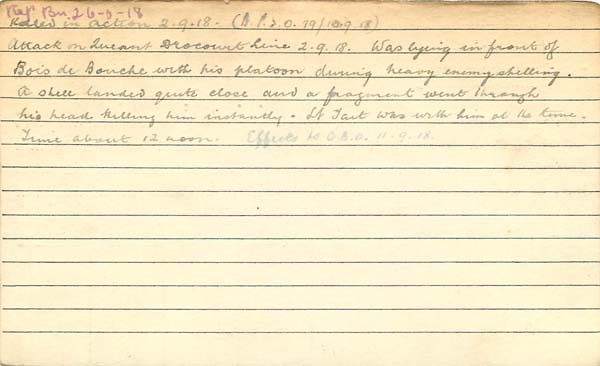 Rep. Bn. 26-8-18
Killed in action 2-9-18. (B.P.2.O. 79/10.9.18)
Attack on Queant Drocourt Line 2-9-18. Was lying in front of
Bois de Bouche with his platoon during heavy enemy shelling.
A shell landed quite close and a fragment went through
his head killing him instantly. Lt Tait was with him at the time.
Time about 12 noon. Effects to O.B.O. 11-9-18.